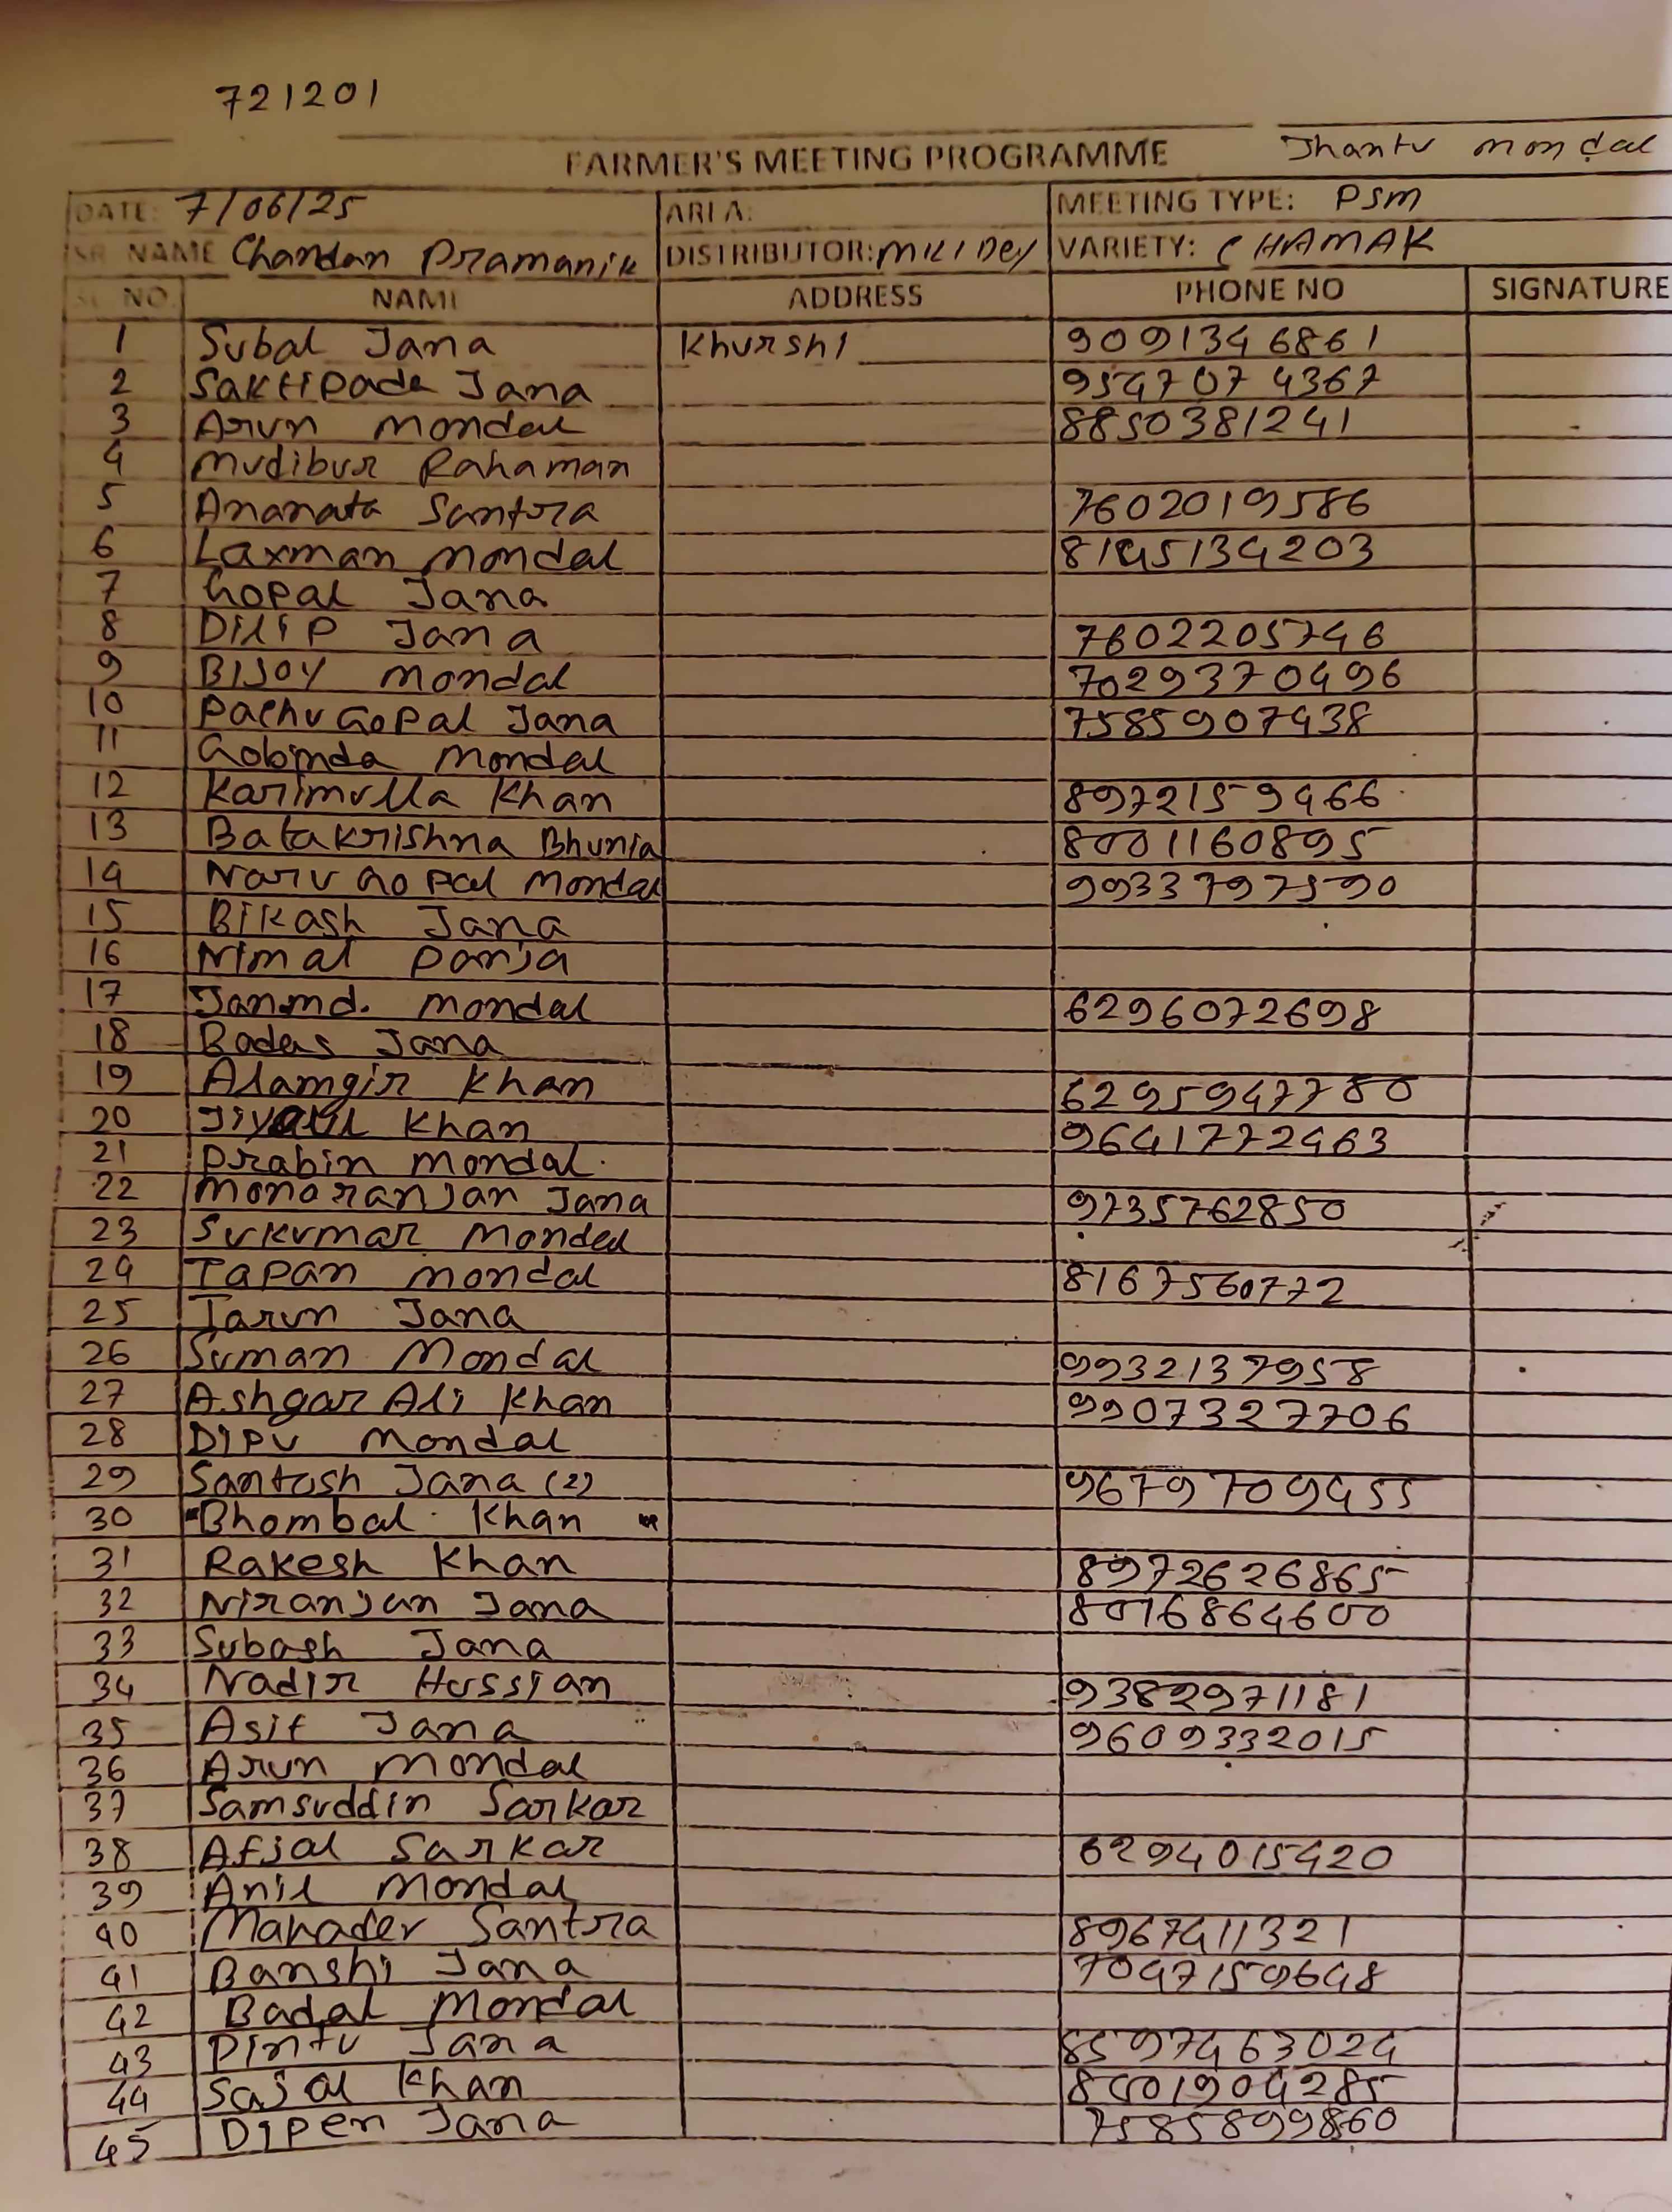 721201
FARMER'S MEETING PROGRAMME Jhantu mondal
DATE: 7/06/25 AREA: MEETING TYPE: PSM
SR. NAME Chandan Pramanik DISTRIBUTOR: VARIETY: CHAMAK
SL NO. NAME ADDRESS PHONE NO SIGNATURE
1 Subal Jana Khurshi 9091346861
2 Saktipada Jana 9547074367
3 Arun mondal 8850381241
4 Mudibur Rahaman
5 Ananata Santra 7602019586
6 Laxman mondal 8145134203
7 Gopal Jana
8 Dilip Jana 7602205746
9 Bijoy mondal 7029370496
10 Pachu Gopal Jana 7585907438
11 Gobinda mondal
12 Karimulla Khan 8972159466
13 Batakrishna Bhunia 8001160895
14 Naru Gopal mondal 9933797590
15 Bikash Jana
16 Nimal Panja
17 Janmd. mondal 6296072698
18 Badas Jana
19 Alamgir Khan 6295947780
20 Khan 9641772463
21 Prabin mondal.
22 Monoranjan Jana 9735762850
23 Sukumar Mondal
24 Tapan mondal 8167560772
25 Tarun Jana
26 Suman Mondal 9932137958
27 Ashgar Ali Khan 9907327706
28 Dipu mondal
29 Santosh Jana (2) 9679709455
30 Bhombal Khan
31 Rakesh Khan 8972626865
32 Niranjan Jana 8016864600
33 Subash Jana
34 Nadir Hussian 9382971181
35 Asit Jana 9609332015
36 Arun mondal
37 Samsuddin Sarkar
38 Afjal Sarkar 6294015420
39 Anil mondal
40 Mahader Santra 8967411321
41 Banshi Jana 7047159648
42 Badal Mondal
43 Pintu Jana 8597463024
44 Sajal Khan 8001904285
45 Dipen Jana 7585899860